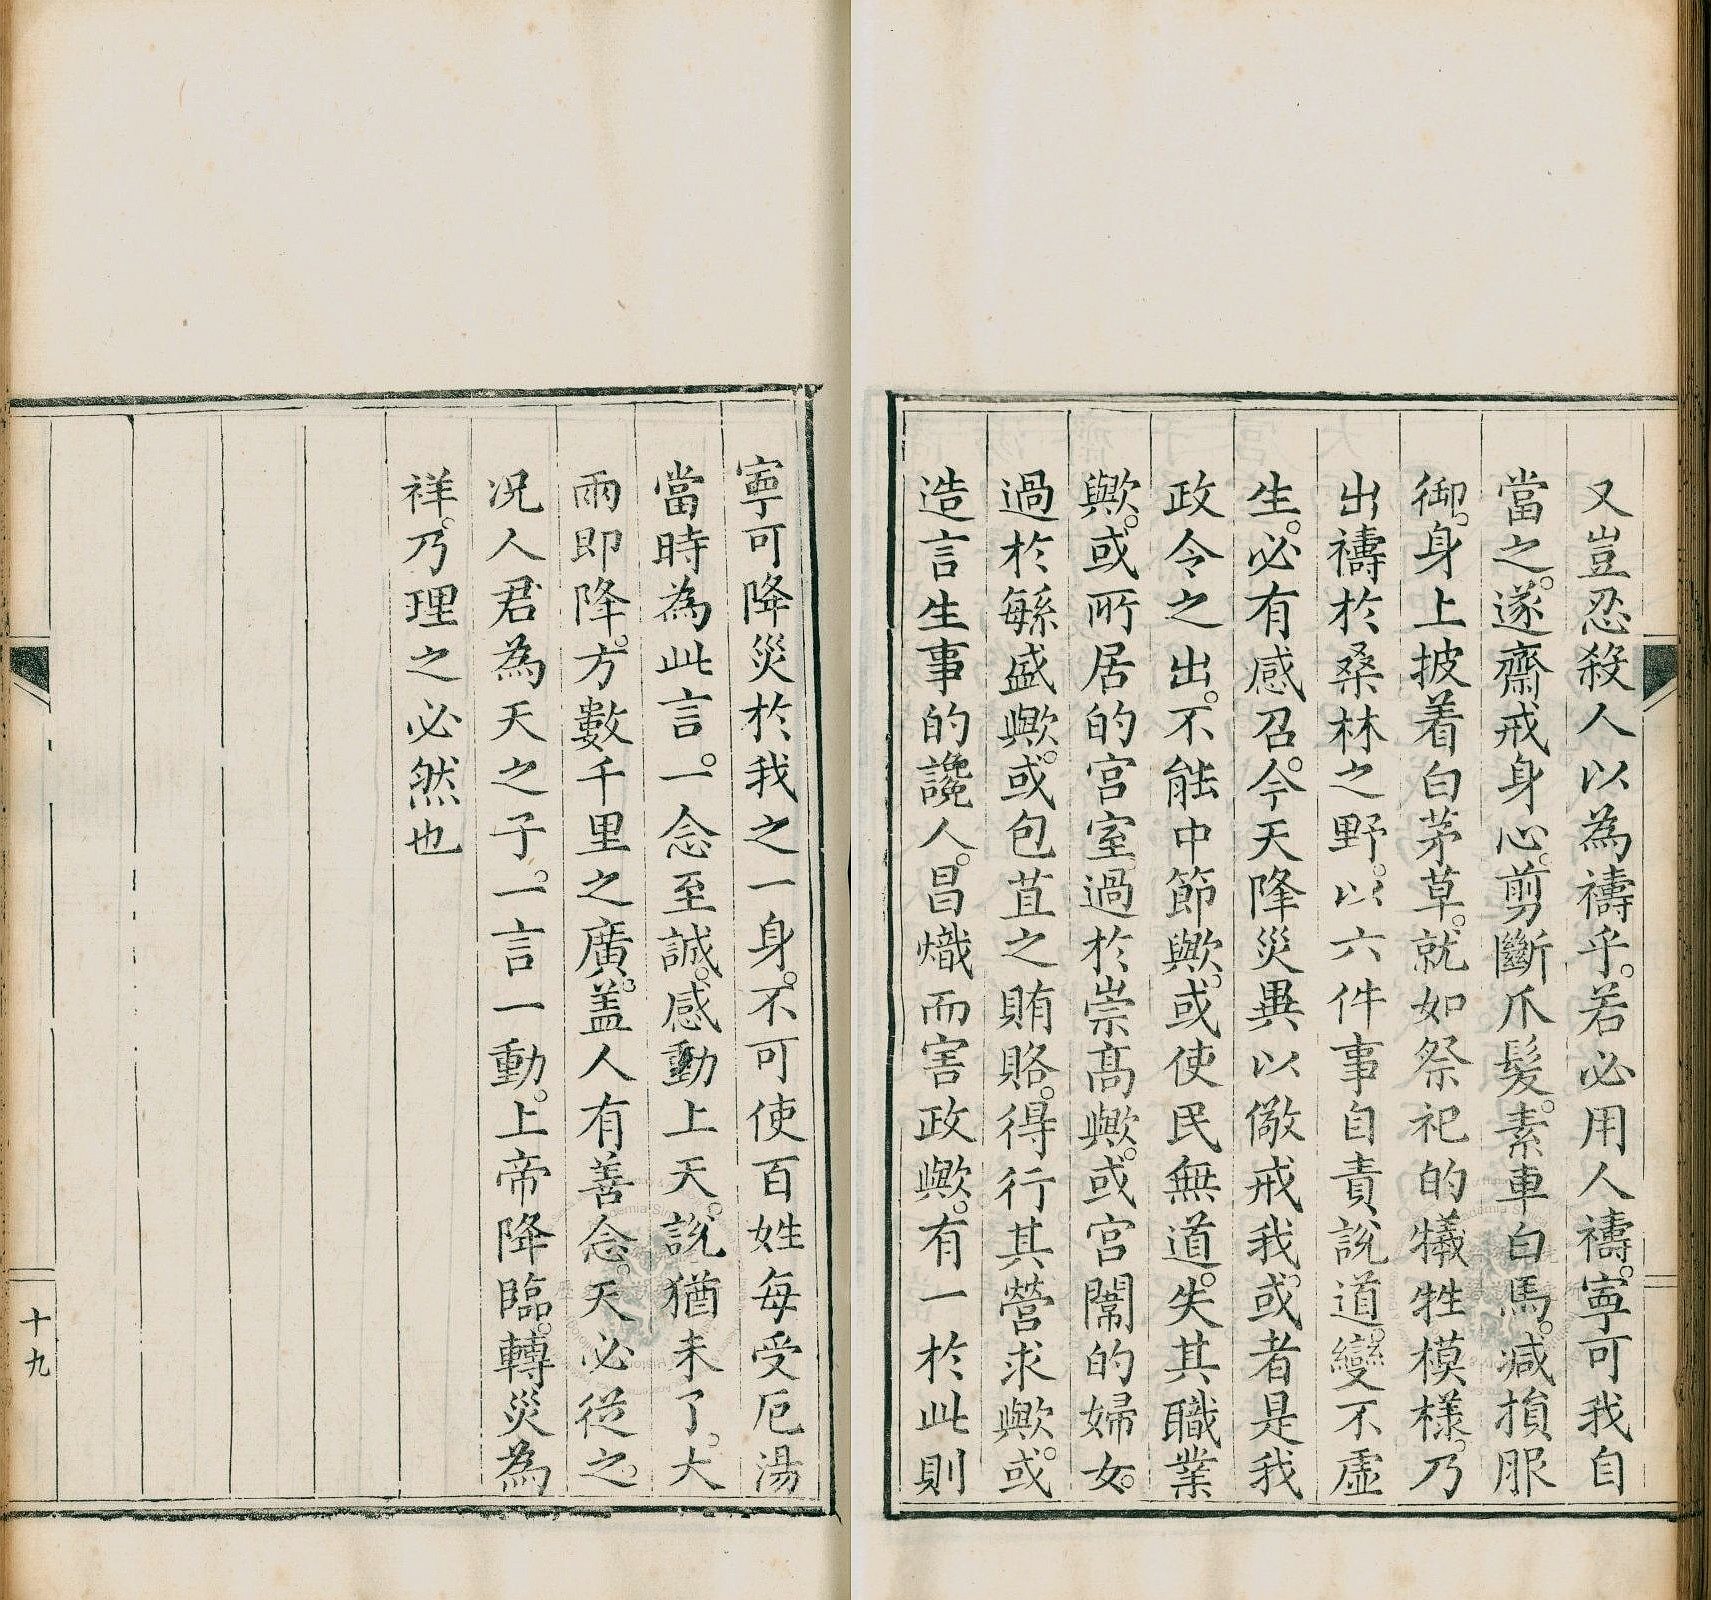 又豈忍殺人以為禱乎。若必用人禱。寧可我自
當之。遂齋戒身心。剪斷爪髮。素車白馬。減損服
御。身上披着白茅草。就如祭祀的犧牲模樣。乃
出禱於桑林之野。以六件事自責說道。變不虛
生。必有感召。今天降災異以儆戒我。或者是我
政令之出。不能中節歟。或使民無道。失其職業
歟。或所居的宮室。過於崇高歟。或宮闈的婦女。
過於繇盛歟。或包苴之賄賂。得行其營求歟。或
造言生事的讒人。昌熾而害政歟。有一於此則
寧可降災於我之一身。不可使百姓每受厄。湯
當時為此言。一念至誠。感動上天。說猶未了。大
雨即降。方數千里之廣。盖人有善念。天必從之。
况人君為天之子。一言一動。上帝降臨。轉災為
祥。乃理之必然也
十九